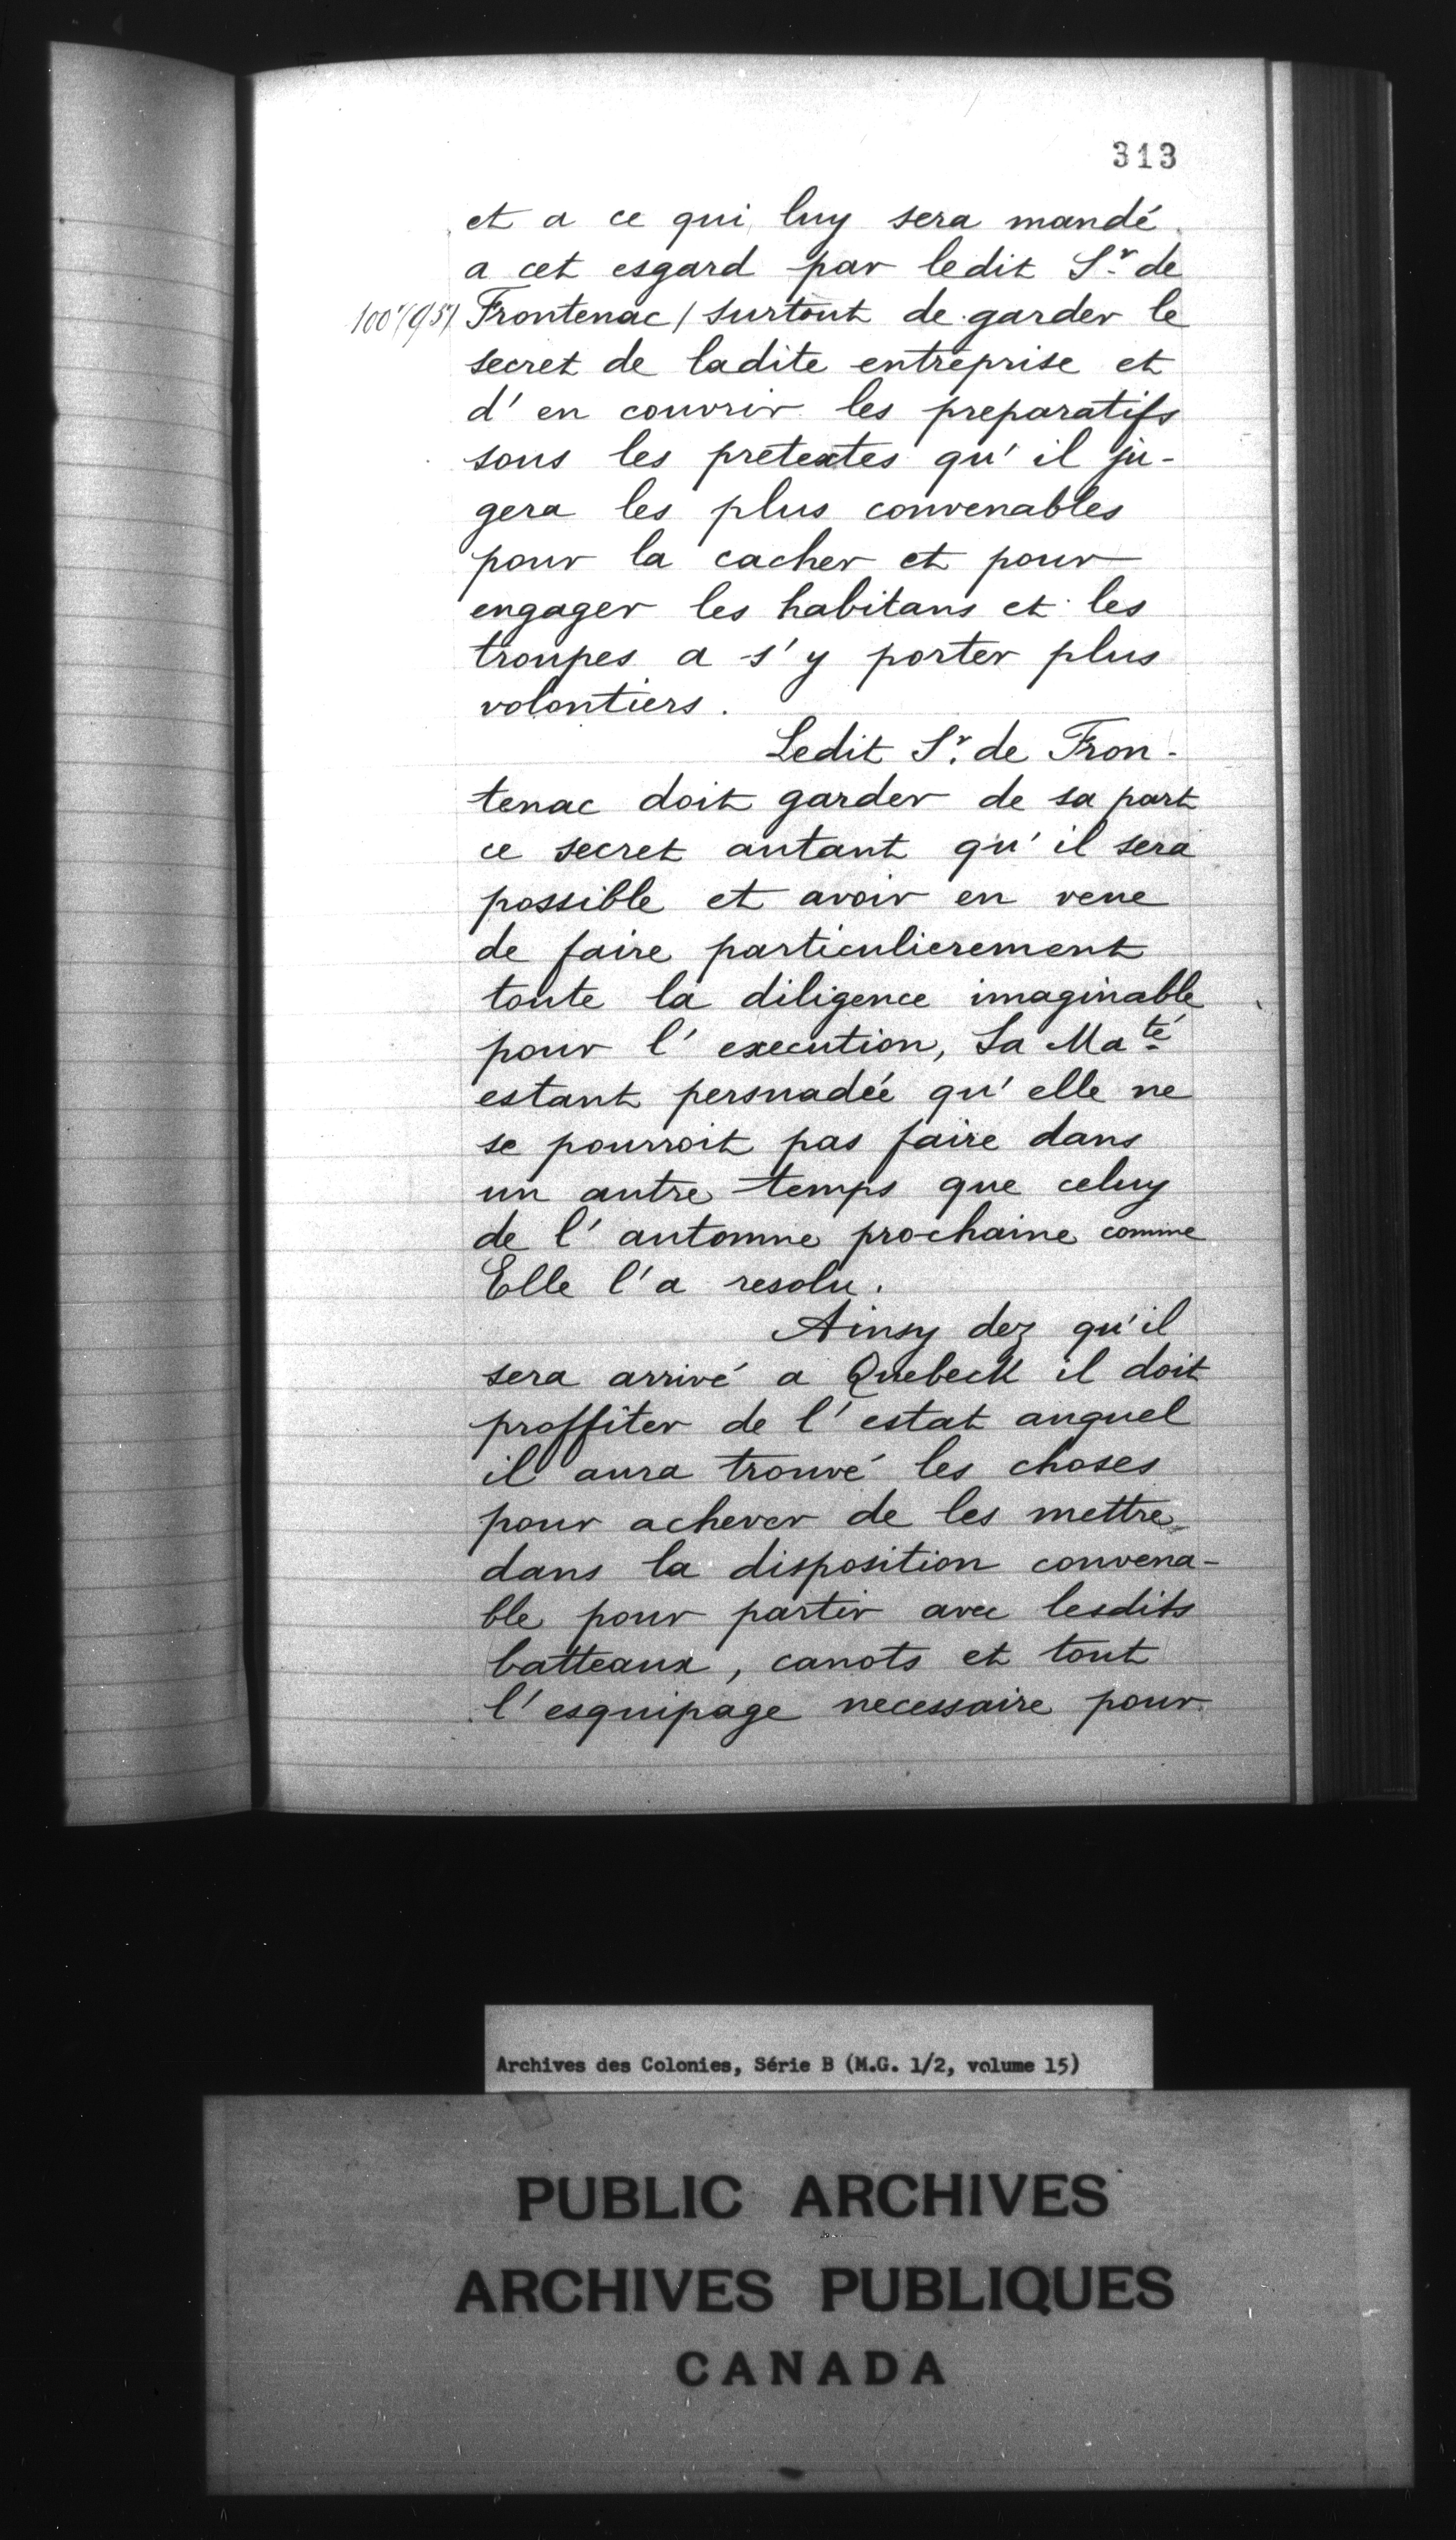 313
et a ce qui luy sera mandé
a cet esgard par ledit Sr. de
Frontenac / surtout de garder le
secret de ladite entreprise et
d' en couvrir les preparatifs
sous les pretextes qu' il ju-
gera les plus convenables
pour la cacher et pour
engager les habitans et les
troupes a s' y porter plus
volontiers.
Ledit Sr. de Fron-
tenac doit garder de sa part
ce secret autant qu' il sera
possible et avoir en veue
de faire particulierement
toute la diligence imaginable
pour l' execution, Sa Maté
estant persuadée qu' elle ne
se pourroit pas faire dans
un autre temps que celuy
de l' automne prochaine comme
Elle l'a resolu.
Ainsy dez qu'il
sera arrivé a Quebeck il doit
proffiter de l' estat auquel
il aura trouvé les choses
pour achever de les mettre
dans la disposition convena-
ble pour partir avec lesdits
batteaux, canots et tout
l' esquipage necessaire pour
Archives des Colonies, Série B (M.G. 1/2, volume 15)
PUBLIC ARCHIVES
ARCHIVES PUBLIQUES
CANADA